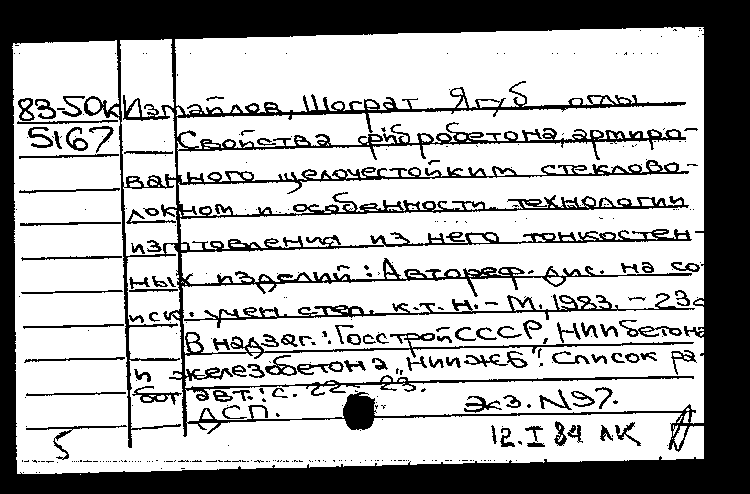 83-50к Измайлов, Шограт Ягуб оглы
5167 Свойства фибробетона, армиро-
ванного щелочестойким стеклово-
локном и особенности технологии
изготовления из него тонкостен-
ных изделий: Автореф. дис. на со-
иск. учен. степ. к.т.н. - М., 1983. - 23с
В надзаг.: Госстрой СССР, НИИ бетона
и железобетона „НИИЖБ". Список ра-
бот авт.: с. 22-23.
ДСП. Экз. N97.
5 12.I 84 ЛК